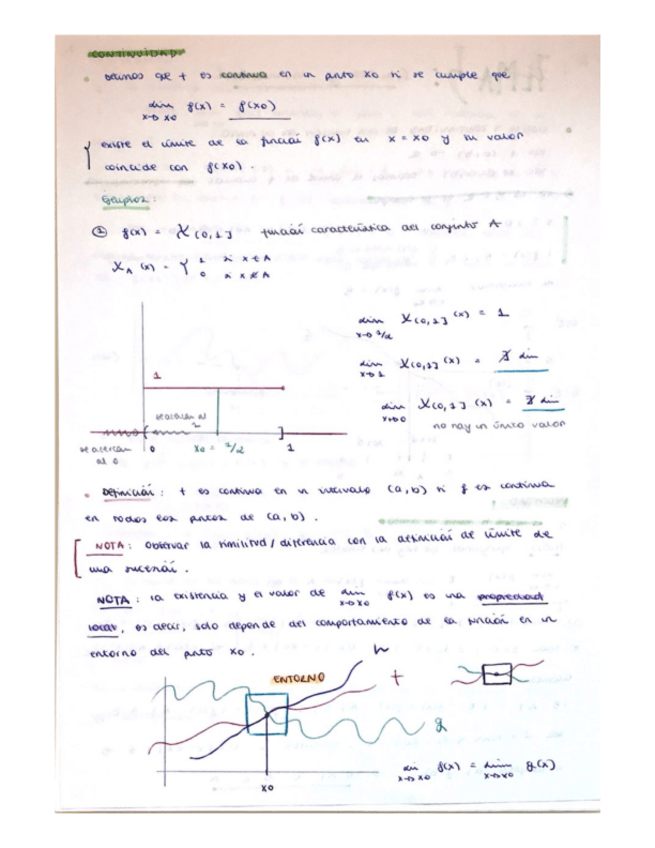 CONTINUIDAD:
• Decimos que f es continua en un punto x0 si se cumple que
lim f(x) = f(x0)
x→x0
existe el límite de la función f(x) en x = x0 y su valor
coincide con f(x0).
Ejemplos:
① f(x) = χ(0,1] función característica del conjunto A
χA (x) = { 1 si x∈A
0 si x∉A
lim χ(0,1] (x) = 1
x→1/2
lim χ(0,1] (x) = ∄ lim
x→1
lim χ(0,1] (x) = ∄ lim
x→0
no hay un único valor
1
se acercan al
se acercan
al 0
0
x0 = 1/2
1
• Definición: f es continua en un intervalo (a,b) si f es continua
en todos los puntos de (a,b).
NOTA: Observar la similitud/diferencia con la definición de límite de
una sucesión.
NOTA: la existencia y el valor de lim f(x) es una propiedad
x→x0
local, es decir, solo depende del comportamiento de la función en un
entorno del punto x0.
h
ENTORNO
f
g
x0
lim f(x) = lim g(x)
x→x0 x→x0